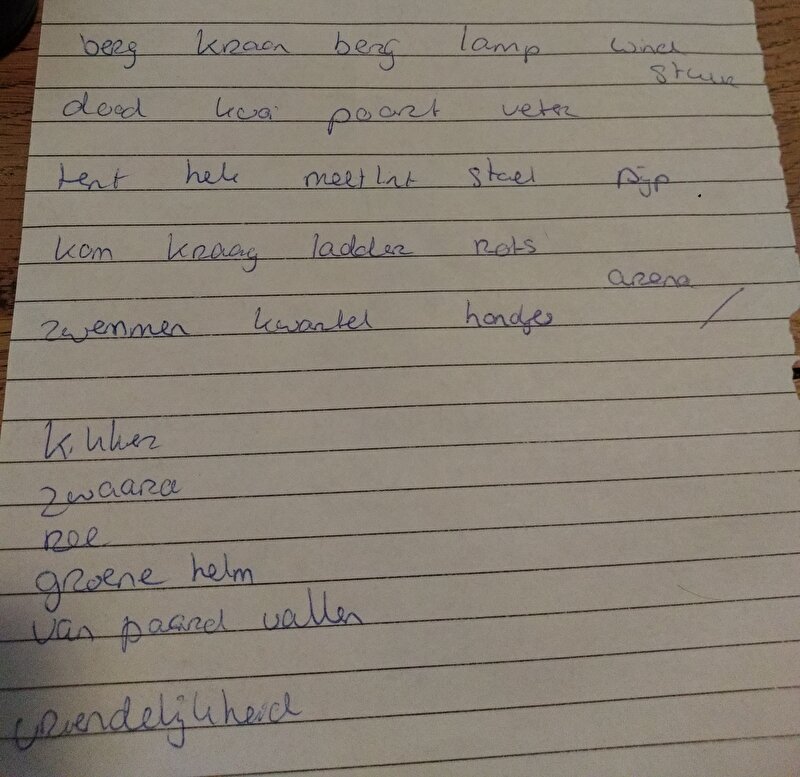 berg kraan berg lamp wind
stuur
dood koai paart veter
tent hek meetlat stael pijp
kom kraag ladder rots
arena
zwemmen kwartel hondjes /
kikker
zwaard
ree
groene helm
van paard vallen
vriendelijkheid